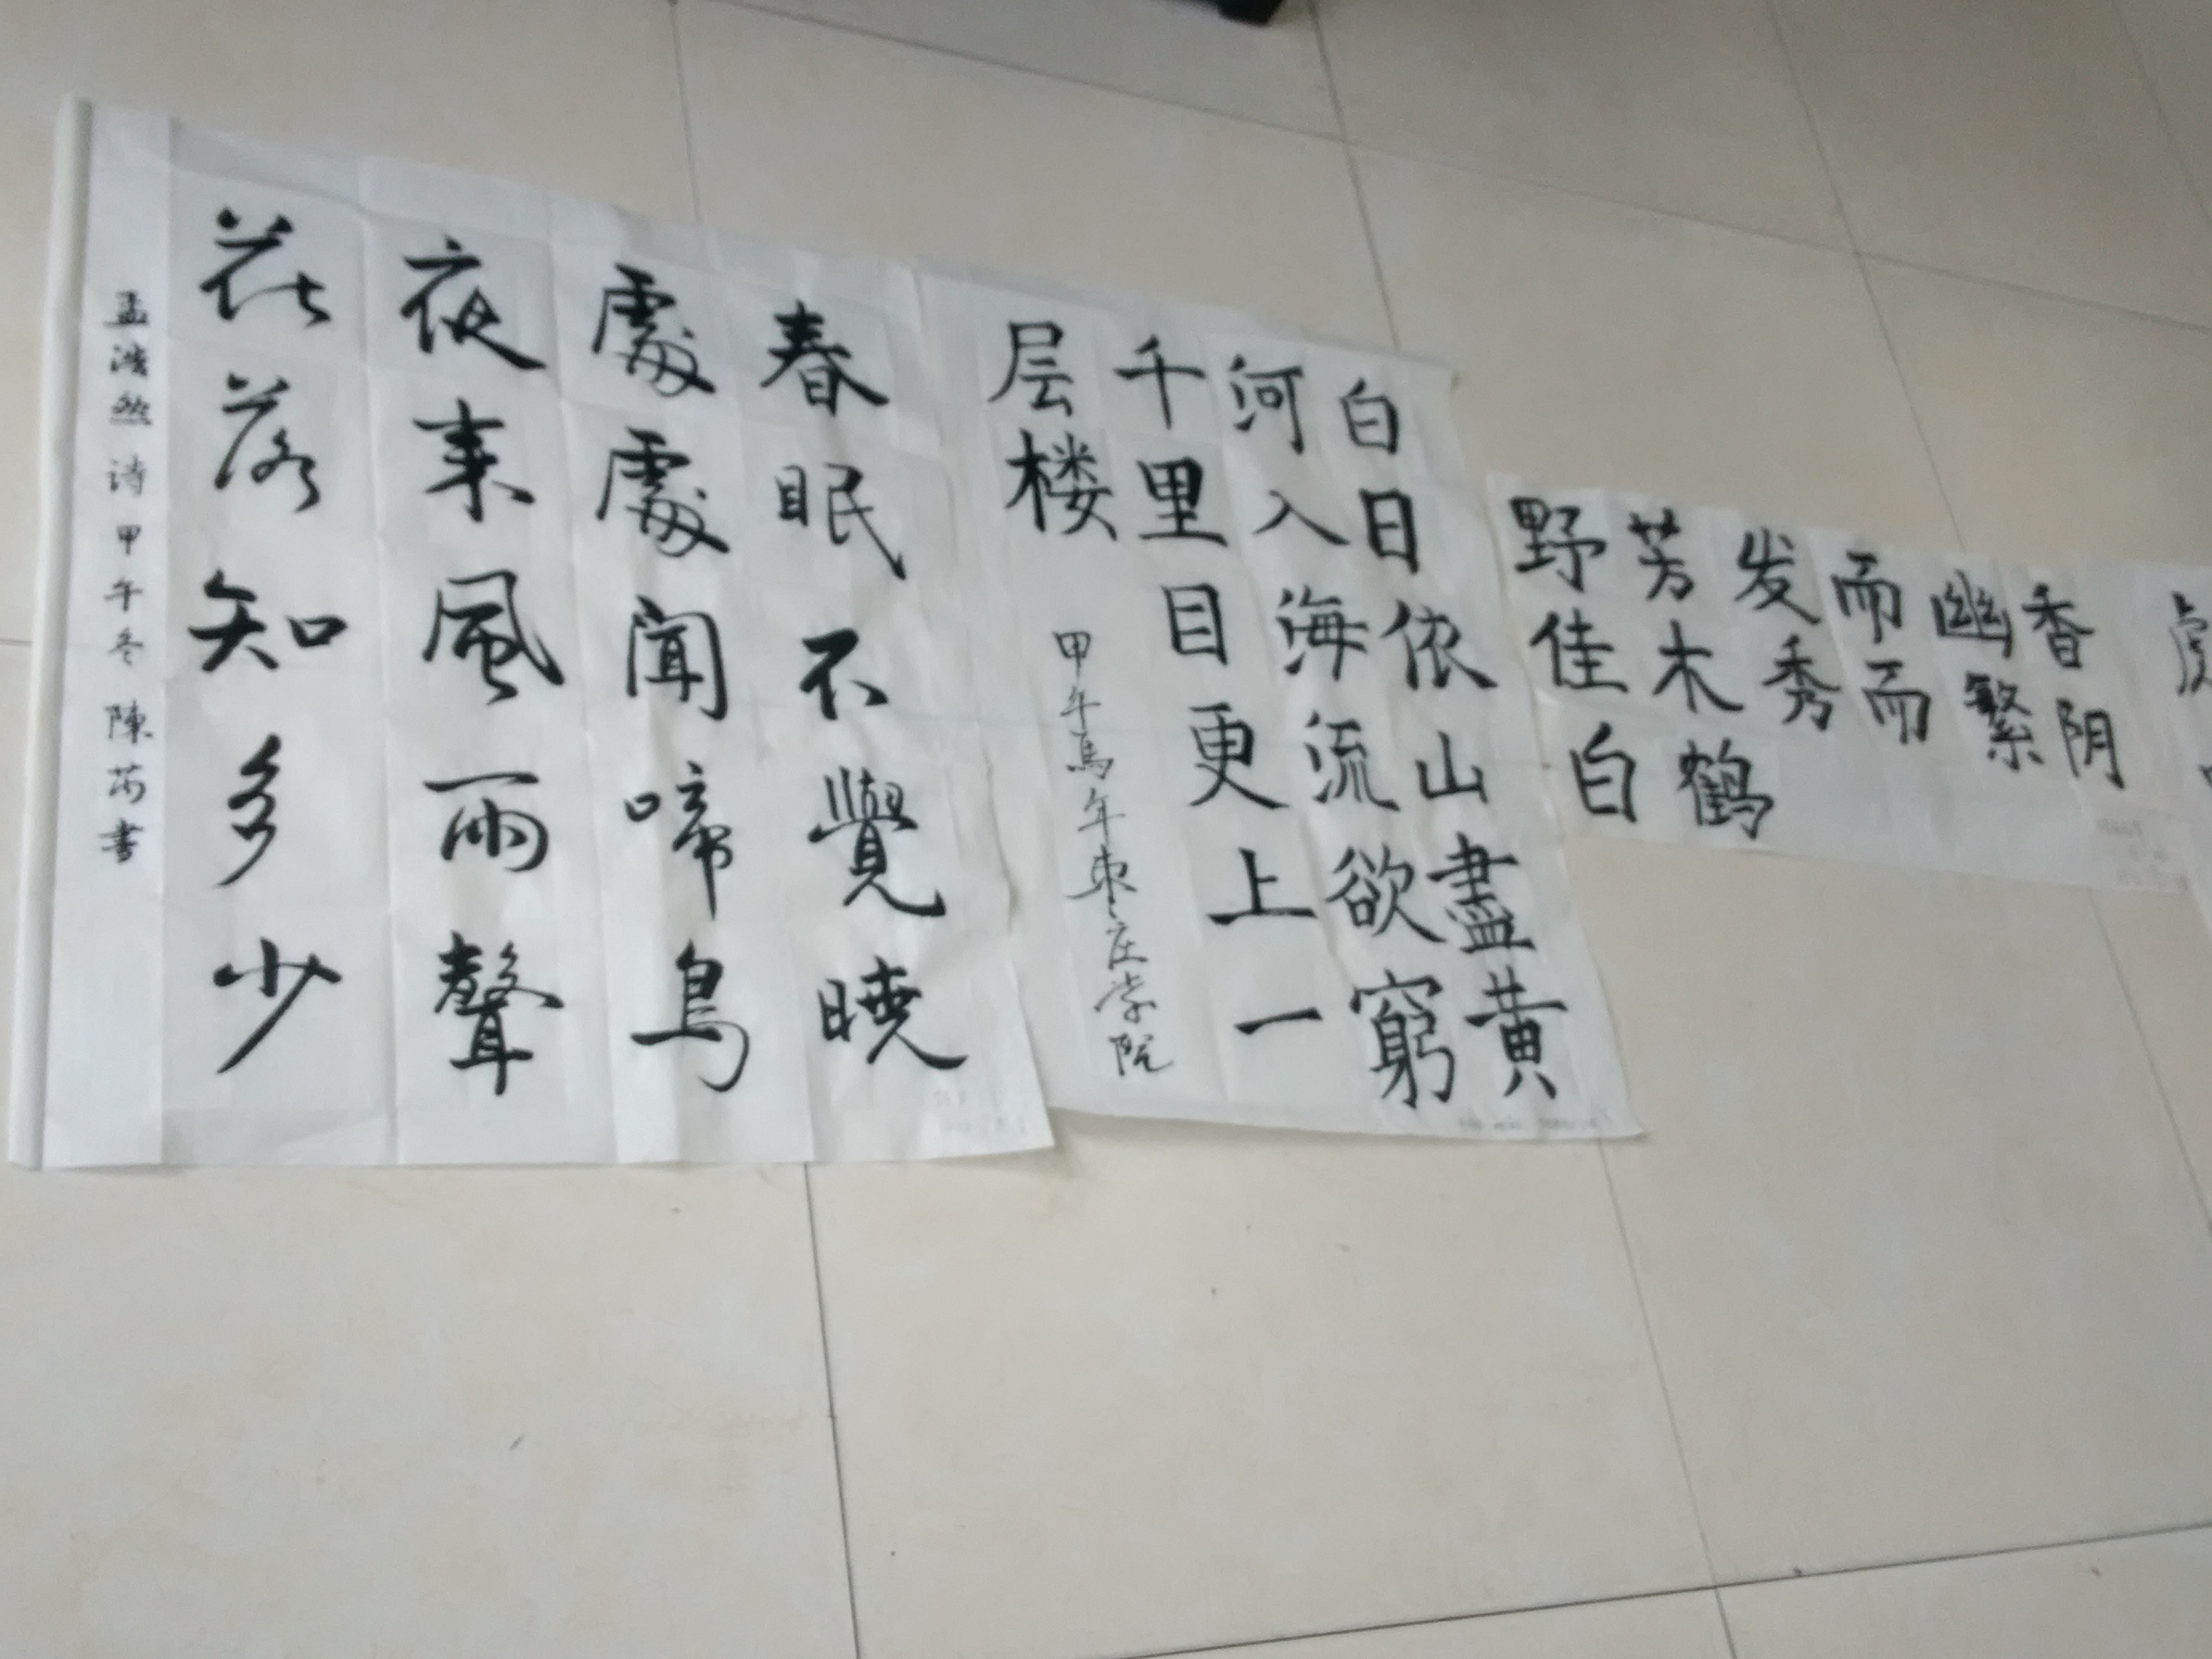 野芳发而幽香
佳木秀而繁阴
白鹤
白日依山盡黄
河入海流欲窮
千里目更上一
层楼
甲午馬年枣庄学院
春眠不覺曉
處處聞啼鳥
夜来風雨聲
花落知多少
孟浩然诗甲午冬陳書